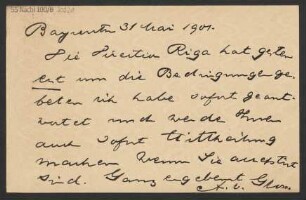 Bayreuth 31 Mai 1901.
Die Direction Riga hat gestern
erst um die Bedingungen ge-
beten ich habe sofort geant-
wortet und werde Ihnen
auch sofort Mittheilung
machen wenn Sie acceptirt
sind. Ganz ergebenst